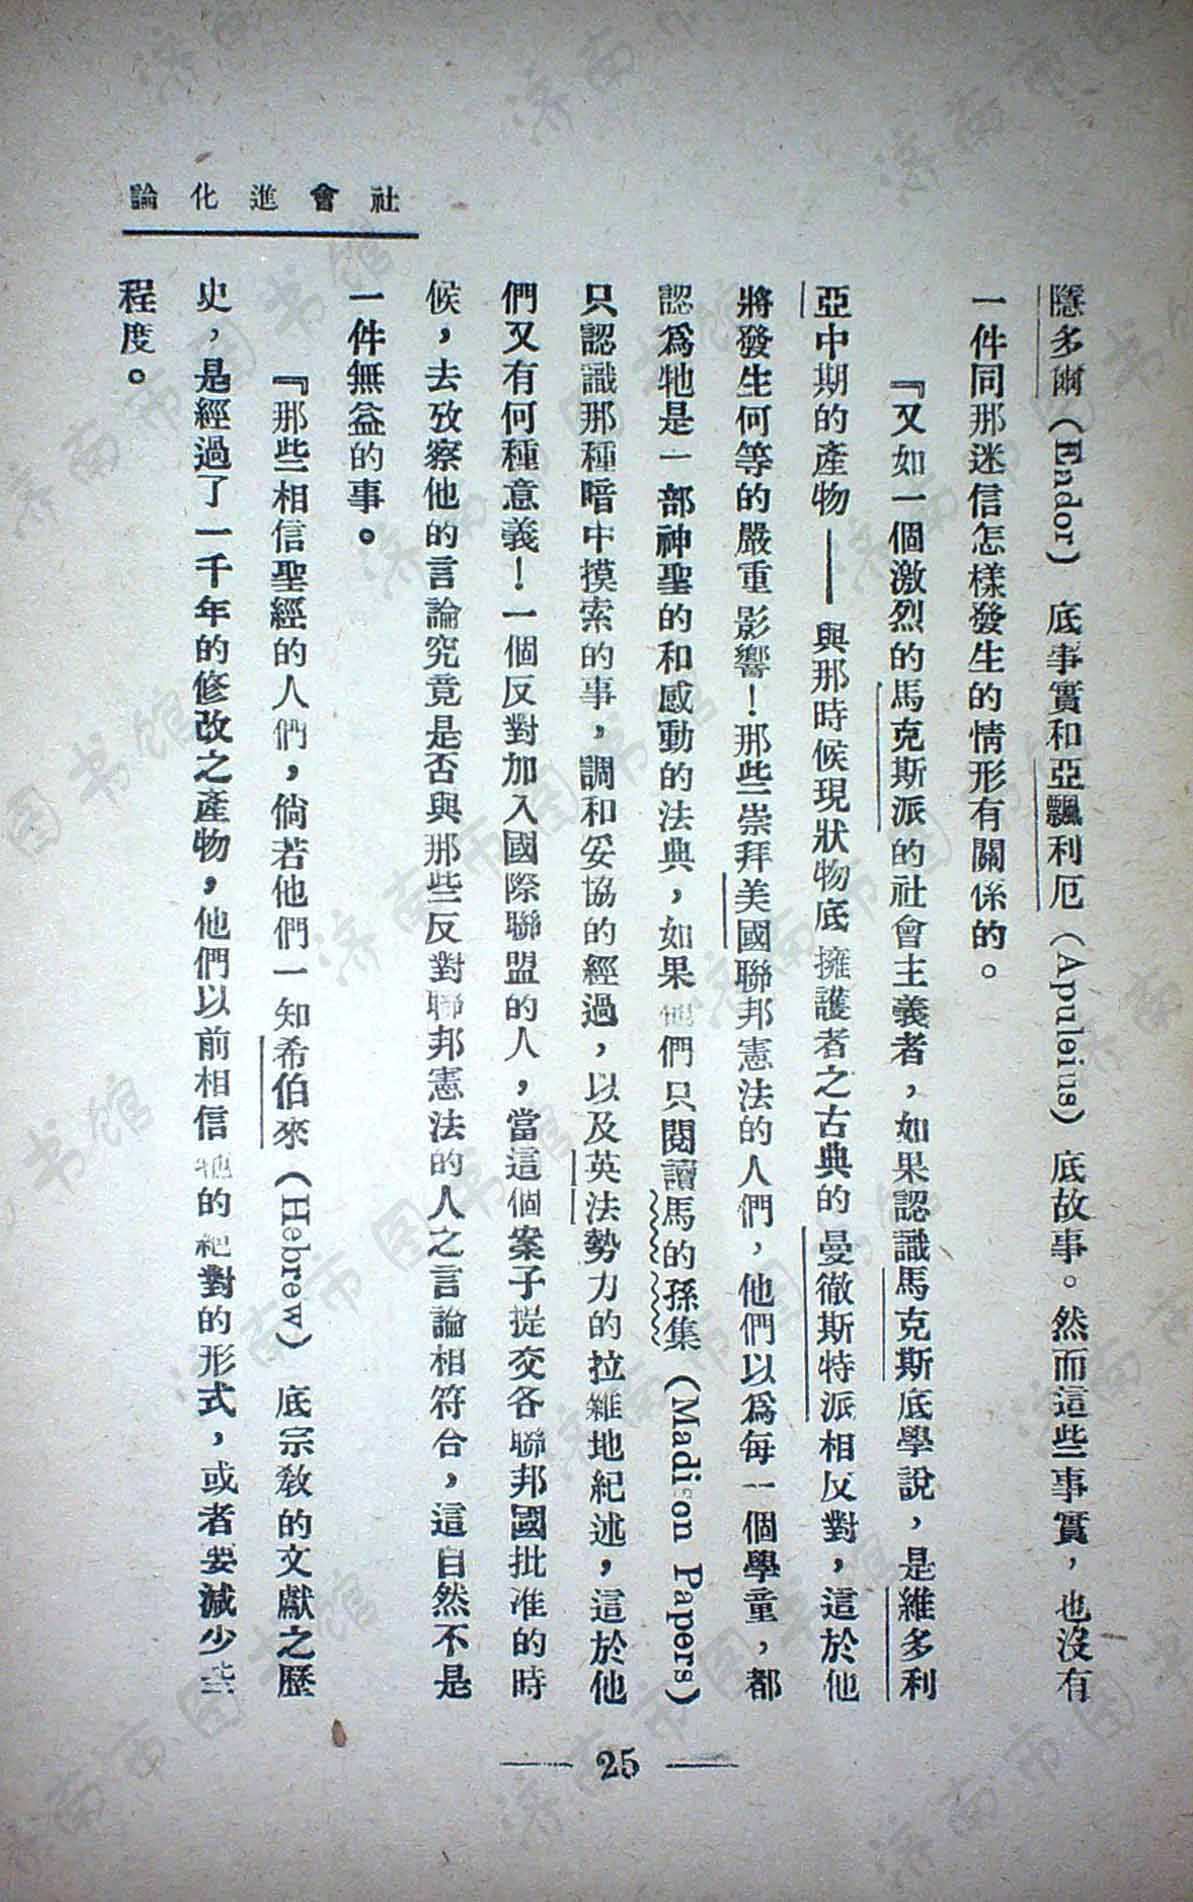 社會進化論
隱多爾（Endor）底事實和亞飄利厄（Apuleius）底故事。然而這些事實，也沒有
一件同那迷信怎樣發生的情形有關係的。
『又如一個激烈的馬克斯派的社會主義者，如果認識馬克斯底學說，是維多利
亞中期的產物——與那時候現狀物底擁護者之古典的曼徹斯特派相反對，這於他
將發生何等的嚴重影響！那些崇拜美國聯邦憲法的人們，他們以爲每一個學童，都
認爲牠是一部神聖的和感動的法典，如果他們只閱讀馬的孫集（Madison Papers）
只認識那種暗中摸索的事，調和妥協的經過，以及英法勢力的拉雜地紀述，這於他
們又有何種意義！一個反對加入國際聯盟的人，當這個案子提交各聯邦國批准的時
候，去攷察他的言論究竟是否與那些反對聯邦憲法的人之言論相符合，這自然不是
一件無益的事。
『那些相信聖經的人們，倘若他們一知希伯來（Hebrew）底宗教的文獻之歷
史，是經過了一千年的修改之產物，他們以前相信牠的絕對的形式，或者要減少些
程度。
— 25 —
济南市图书馆